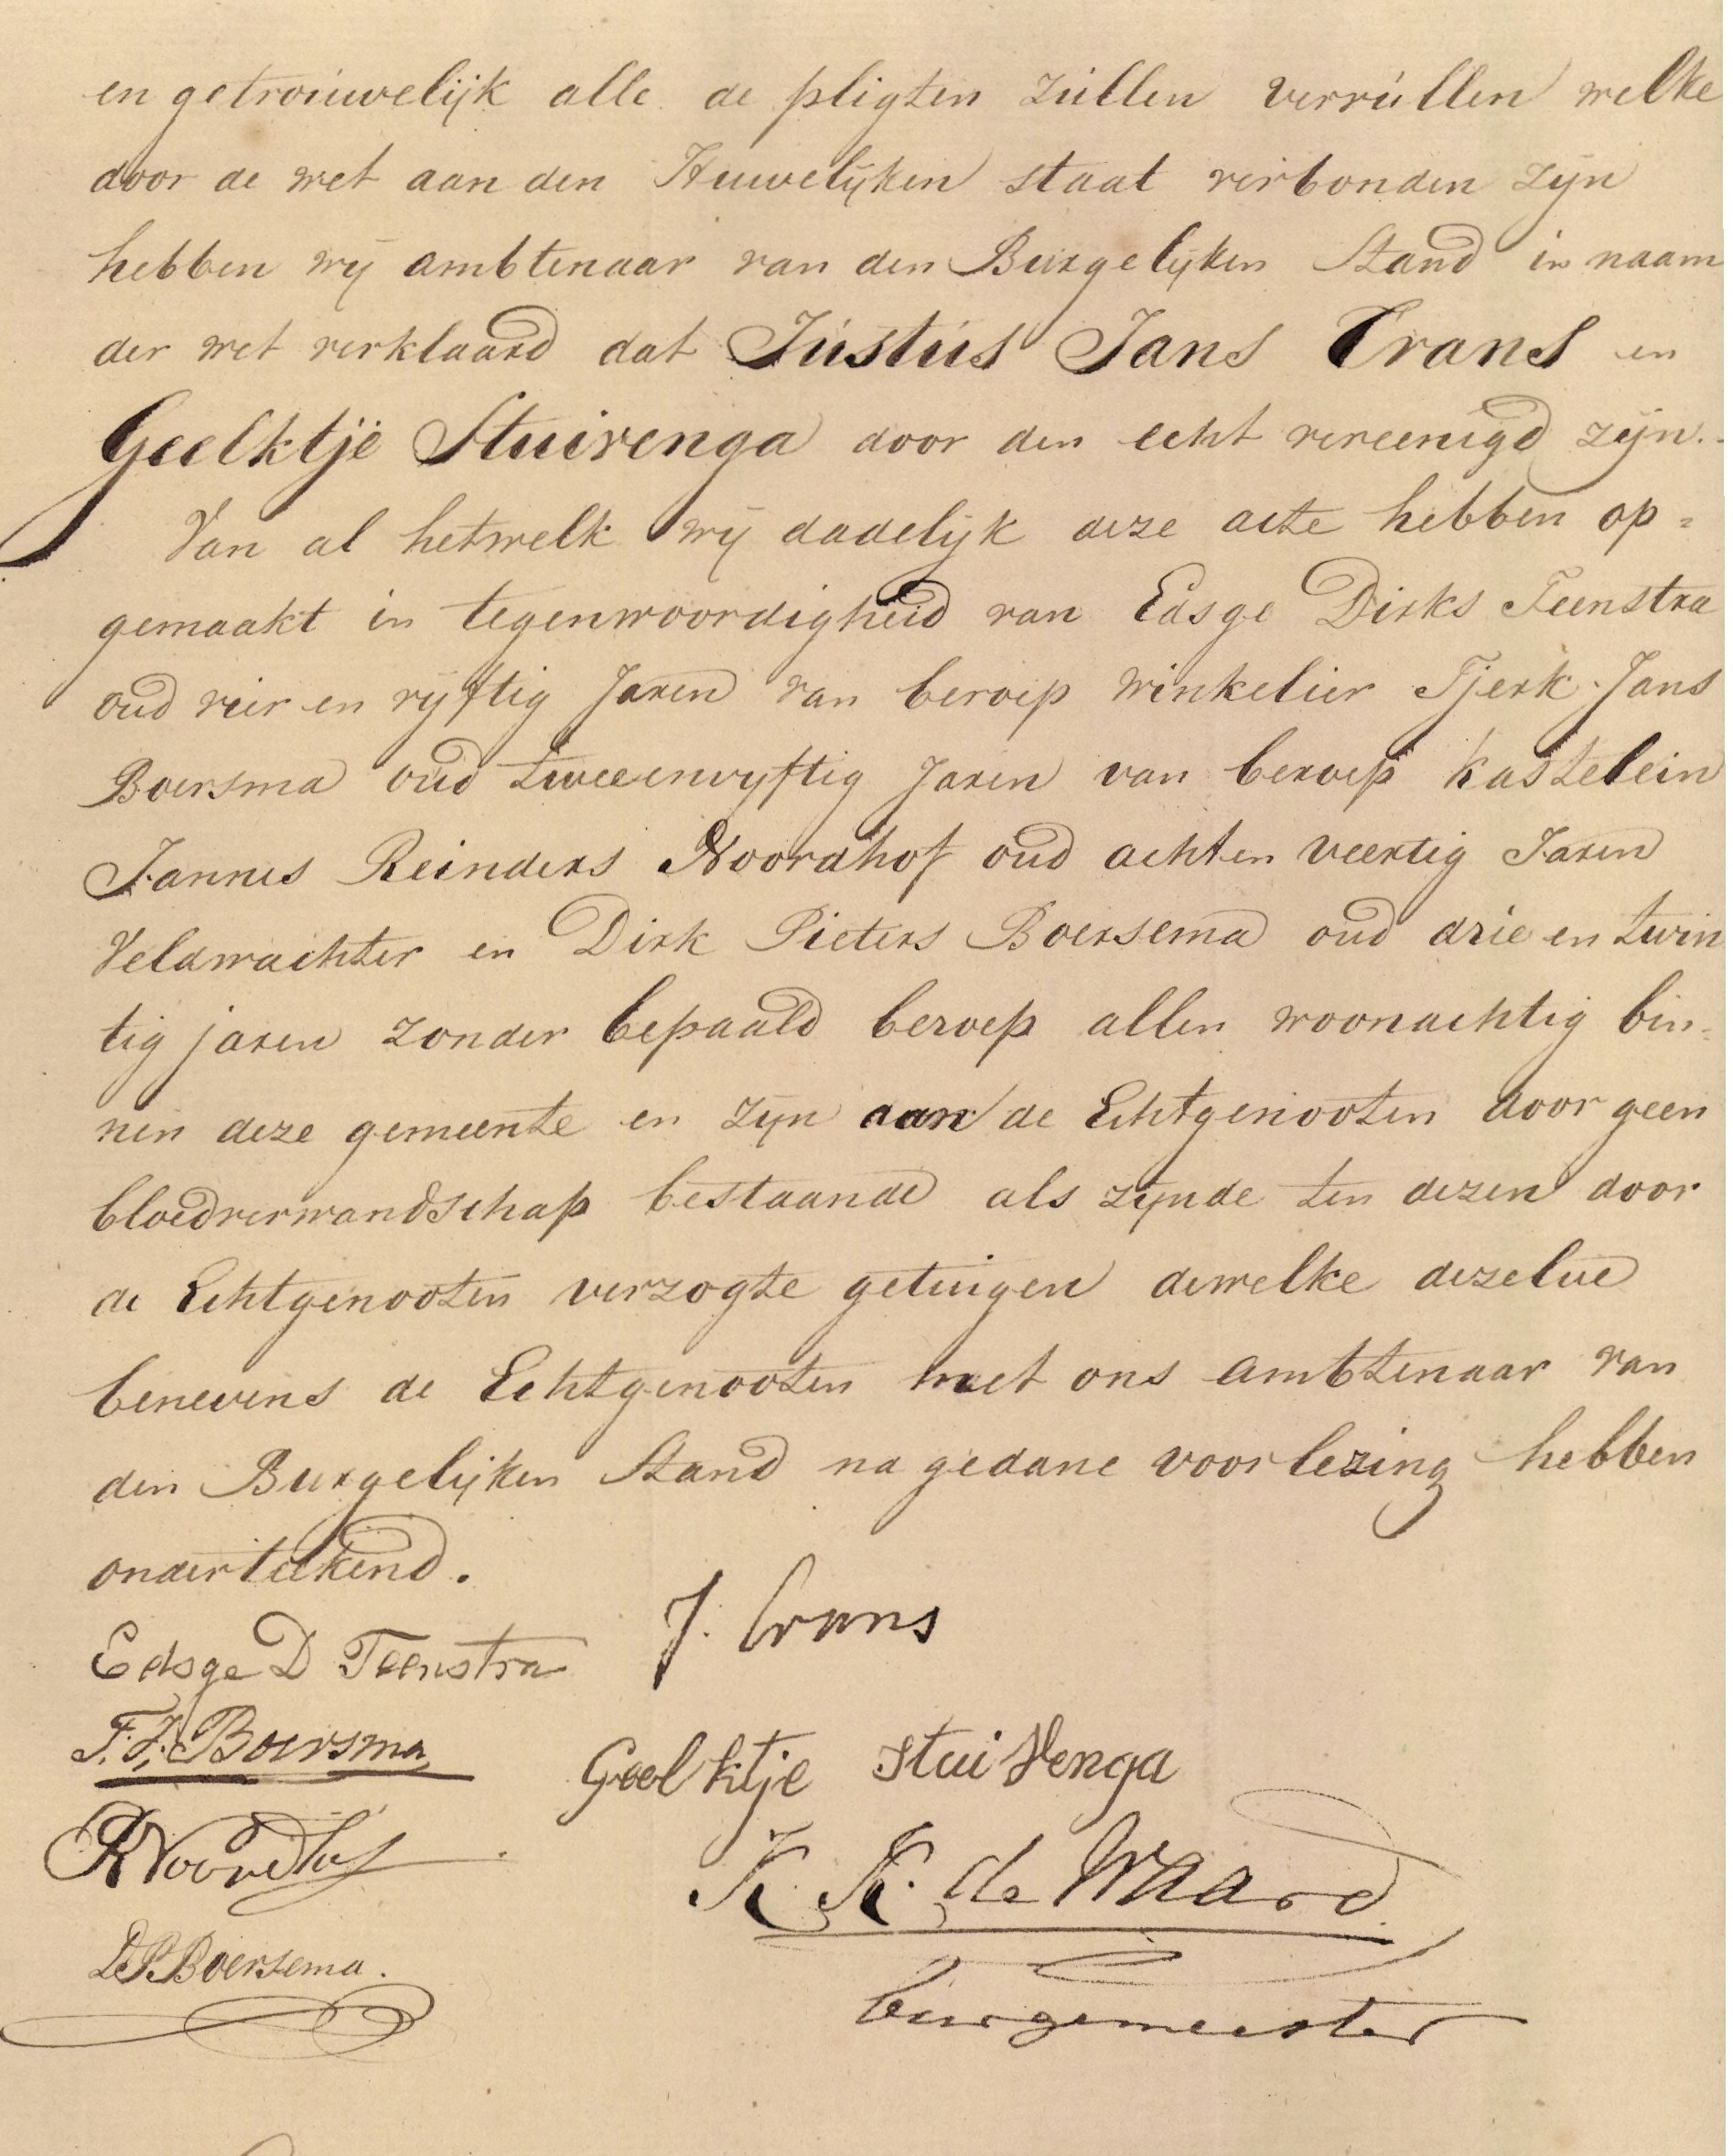 en getrouwelijk alle de pligten zullen vervullen welke
door de wet aan den Huwelijken staat verbonden zijn
hebben wij ambtenaar van den Burgelijken Stand in naam
der wet verklaard dat Justus Jans Crans en
Geelktje Stuivenga door den echt vereenigd zijn.-
Van al hetwelk wij dadelijk deze acte hebben op=
gemaakt in tegenwoordigheid van Edsge Dirks Teenstra
oud vier en vyftig Jaren van beroep winkelier Tjerk Jans
Boersma oud tweeenvyftig Jaren van beroep kastelein
Jannes Reinders Noordhof oud achten veertig Jaren
Veldwachter en Dirk Pieters Boersema oud drie en twin
tig jaren zonder bepaald beroep allen woonachtig bin=
nen deze gemeente en zijn aan de Echtgenooten door geen
bloedverwandschap bestaande als zijnde ten dezen door
de Echtgenooten verzogte getuigen dewelke dezelve
benevens de Echtgenooten met ons ambtenaar van
den Burgelijken Stand na gedane voorlezing hebben
ondertekend.
J. Crans
Edsge D Teenstra
T. J. Boersma
Geelktje StuiVenga
R Noordhof
K. K. de Waard
D.P. Boersema.
burgemeester